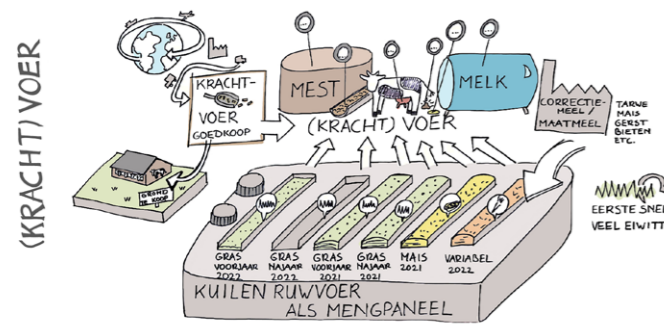 (KRACHT) VOER
KRACHT-
VOER
GOEDKOOP
GROND
TE KOOP
MEST
MELK
(KRACHT) VOER
CORRECTIE-
MEEL /
MAATMEEL
TARWE
MAIS
GERST
BIETEN
ETC.
EERSTE SNE
VEEL EIWIT
GRAS
VOORJAAR
2022
GRAS
NAJAAR
2022
GRAS
VOORJAAR
2021
GRAS
NAJAAR
2021
MAIS
2021
VARIABEL
2022
KUILEN RUWVOER
ALS MENGPANEEL